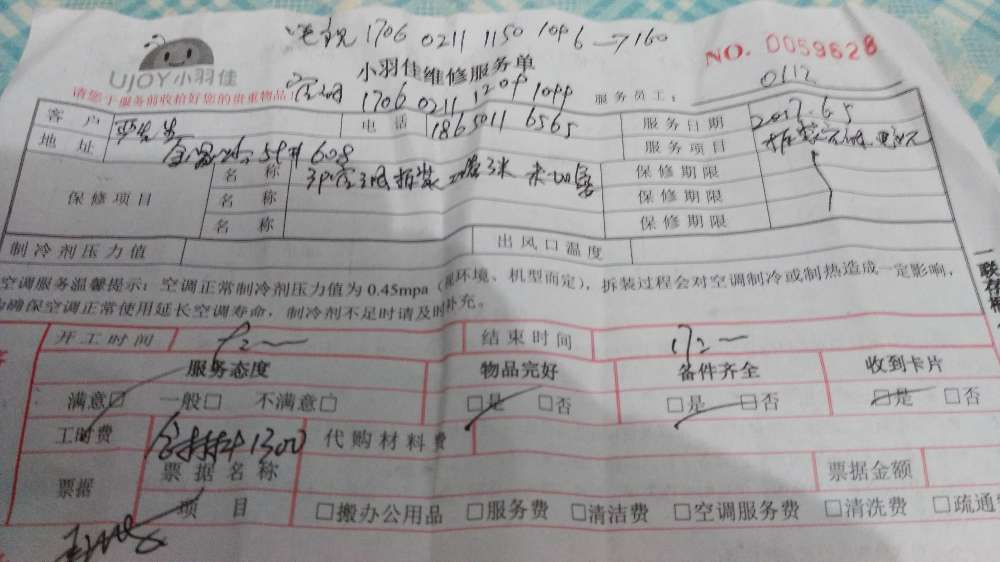 电视 1706 0211 1150 1096 → 160
UJOY小羽佳
小羽佳维修服务单
NO. 0059628
请您于服务前收拾好您的贵重物品!
空调 1706 0211 1209 1099
服务员工: 0112
客户
电话 18650116565
服务日期 2017.6.5
地址 608
服务项目
保修项目
名称 3P空调拆装 3米
保修期限
名称
保修期限
名称
保修期限
制冷剂压力值
出风口温度
空调服务温馨提示:空调正常制冷剂压力值为0.45mpa(视环境、机型而定),拆装过程会对空调制冷或制热造成一定影响,
为确保空调正常使用延长空调寿命,制冷剂不足时请及时补充。
一联存根
开工时间
结束时间
服务态度
物品完好
备件齐全
收到卡片
满意□ 一般□ 不满意□
□是 □否
□是 □否
□是 □否
工时费 含材料1300
代购材料费
票据
票据名称
票据金额
项目
□搬办公用品 □服务费 □清洁费 □空调服务费 □清洗费 □疏通